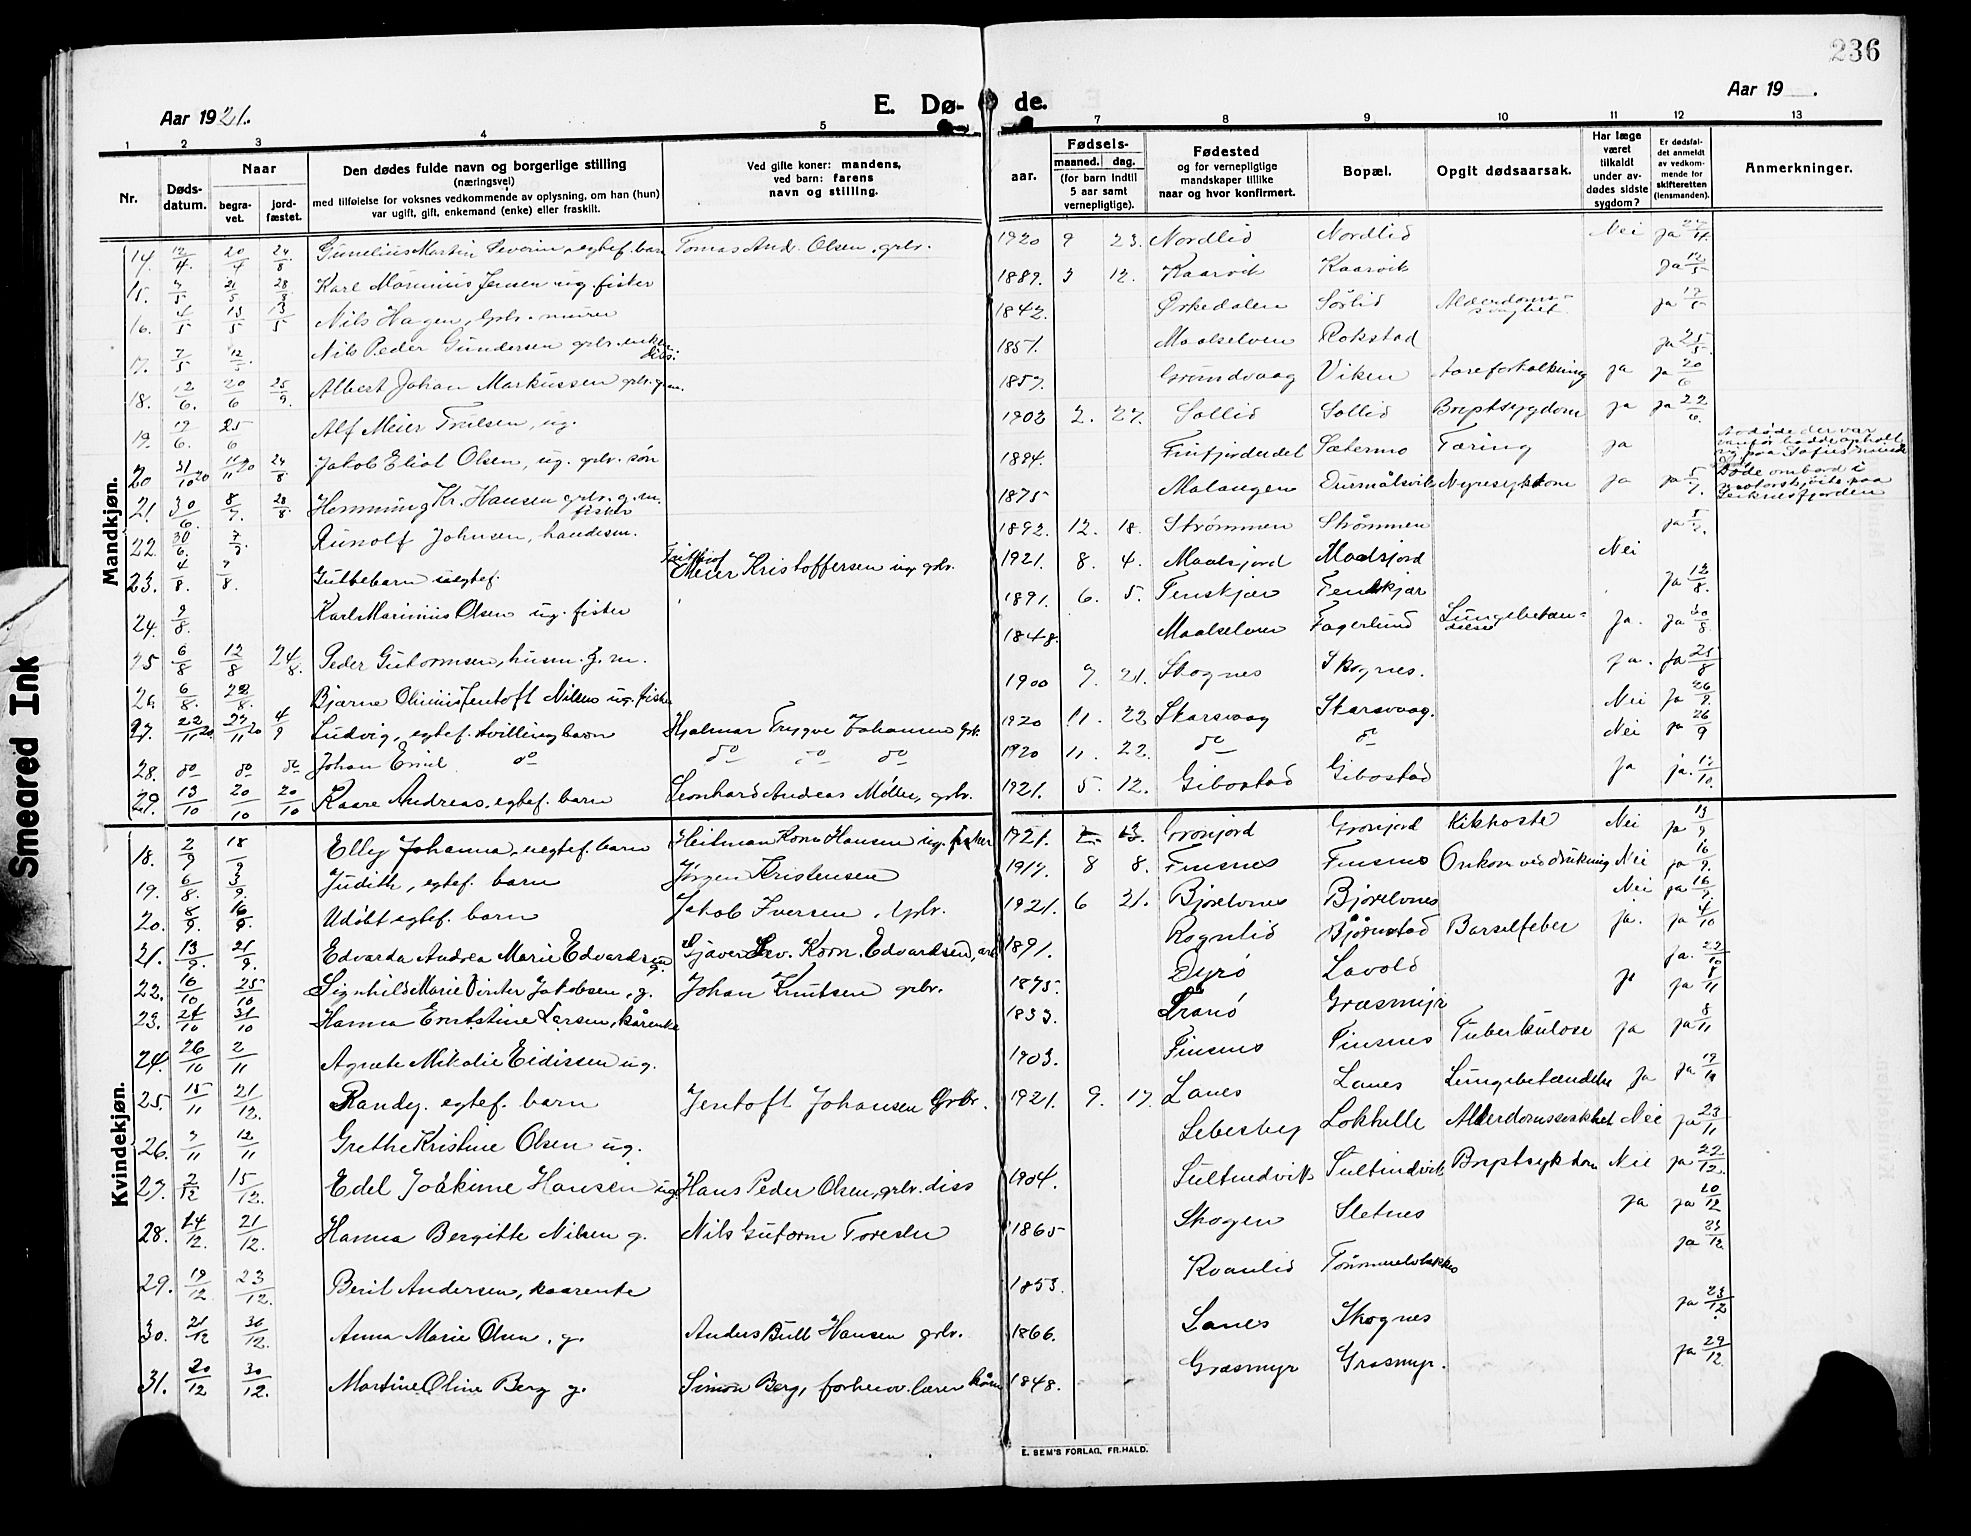 236
Aar 1921.
E. Dø- de.
Aar 19 .
1 2 3 4 5 7 8 9. 10 11 12 13
Nr.
Døds-
datum.
Naar
begra-
vet.
jord-
fæstet.
Den dødes fulde navn og borgerlige stilling
(næringsvei)
med tilføielse for voksnes vedkommende av oplysning, om han (hun)
var ugift, gift, enkemand (enke) eller fraskilt.
Ved gifte koner: mandens,
ved barn: farens
navn og stilling.
aar.
Fødsels-
maaned. dag.
(for barn indtil
5 aar samt
vernepligtige).
Fødested
og for vernepligtige
mandskaper tillike
naar og hvor konfirmert.
Bopæl.
Opgit dødsaarsak.
Har læge
været
tilkaldt
under av-
dødes sidste
sygdom?
Er dødsfal-
det anmeldt
av vedkom-
mende for
skifteretten
(lensmanden).
Anmerkninger.
Mandkjøn.
14. 12/4. 20/4 24/8 Gunelius Martin Severin, egtef. barn Tomas And. Olsen, grbr. 1920 9 23. Nordlid Nordlid Nei ja
15. 21/5 28/8 Karl Marinius Jensen ug. fisker 1889. 3 12. Kaarvik Kaarvik ja 12/5
16. 4/5 13/5 13/5 Nils Hagen, gbr. murer 1842. Ørkedalen Sørlid ja
17. 7/5 12/5. Nils Peder Gundersen grbr. enkem. diss: 1851. Maalselven Rokstad ja 25/5.
18. 12/6. 20/6 25/9. Albert Johan Markussen grbr. g.m. 1857. Grundvaag Viken Aareforkalkning ja ja 20/6
19. 25/6 Alf Meier Trulsen, ug. 1902 2. 27. Sollid Sollid Brystsygdom ja ja 22/6.
20 31/10 20 11/11 20 24/8 Jakob Eliot Olsen, ug. grbr. søn 1894. Finfjordeidet Sætermo Tæring ja
21. 30/6. 8/7. 28/8 Hemming Kr. Hansen grbr. g.m. fisker 1875 Malangen Nyresykdom ja ja 5/7.
Døde ombord i
motorskjøite paa
22. 30/6. 7/7 Runolf Johnsen, handelsm. 1892. 12. 18. Strømmen Strømmen ja
23. 4/8. 7/8. Guttebarn uegtef. Meier Kristoffersen ug. grbr. 1921. 8. 4. Maalsjord Maalsjord Nei
24. 7/8. Karl Marinius Olsen ug. fisker 1891. 6. 5. Finskjær Finskjær ja 12/8.
25 6/8 12/8 24/8. Peder Gutormsen, husm. g.m. 1848. Maalselven Fagerlund Lungebetæn- delse ja. ja 30/8.
26. 6/8. 22/8. Bjarne Olinius Jentoft Nilsen ug. fisker 1900 7. 21. Skognes Skognes. ja. ja 23/8
27. 22/11 20. 27/11 20 4/9 Ludvig, egtef. tvillingbarn Hjalmar Trygve Johansen grbr. 1920 11. 22 Skarsvaag Skarsvaag. Nei ja 26/9.
28. do do do Johan Emil do do do do 1920 11. 22. do do Nei ja 26/9
29. 13/10 20/10 20/10 Kaare Andreas, egtef. barn Leonhard Andreas Møller, grbr. 1921. 5. 12. Gibostad Gibostad ja ja. 17/10.
Kvindekjøn.
18. 2/9 18/9 Elly Johanna, uegtef. barn Heitman Korn. Hansen ug. fisker 1921. 2. 13. Grønjord Grønjord Kikhoste Nei ja 13/9
19. 6/8. 3/9. Judith, egtef. barn Jørgen Kristensen 1917. 8 8. Finsnes Finsnes Omkom ved drukning Nei ja 16/9.
20. 8/9. 16/9. Udøbt egtef. barn Jakob Iversen, grbr. 1921. 6 21. Bjorelvnes Bjorelvnes Nei ja 16/9
21. 13/9. 21/9. Edvarda Andrea Marie Edvardsen g. Gjæver Sev. Korn. Edvardsen, arb. 1891. Rognlid Bjørnstad Barselfeber ja. ja 4/10
22. 16/10 25/10 Signhild Marie Vinter Jakobsen, g. Johan Knutsen grbr. 1875. Dyrø Lavold ja. 22/10
23. 24/10 31/10 Hanna Erntstine Larsen, kårenke 1833. Tranö Græsmyr ja ja 8/11
24. 26/10 2/11 Agnete Mikalie Eidissen ug. 1903. Finsnes Finsnes Tuberkulose ja ja 8/11
25. 15/11 21/12. Randy. egtef. barn Jentoft Johansen Grbr. 1921. 9. 17. Lanes Lanes Lungebetændelse Ja ja
26. 7/11 12/11 Grethe Kristine Olsen ug. Lebesby Lokhelle Alderdomssvakhet Nei ja 23/11
27. 2/12 15/12. Edel Joakime Hansen ug. Hans Peder Olsen, grbr. diss 1904. Sultindvik Sultindvik Brystsykdom Nei ja 22/12.
28. 14/12. 21/12. Hanna Bergitte Nilsen g. Nils Gutorm Toresen 1865 Skogen Sletnes ja ja 20/12
29. 19/12. 23/12. Beril Andersen, kaarenke 1853. Kvanlid ja 23/12.
30. 21/12 30/12. Anna Marie Olsen, g. Anders Bull Hansen grbr. 1866. Lanes Skognes ja 23/12.
31. 20/12 30/12. Martine Oline Berg g. Simon Berg, forhenv. lærer 1848. Græsmyr Græsmyr. ja 29/12.
E. SEM'S FORLAG, FR.HALD.
Smeared Ink